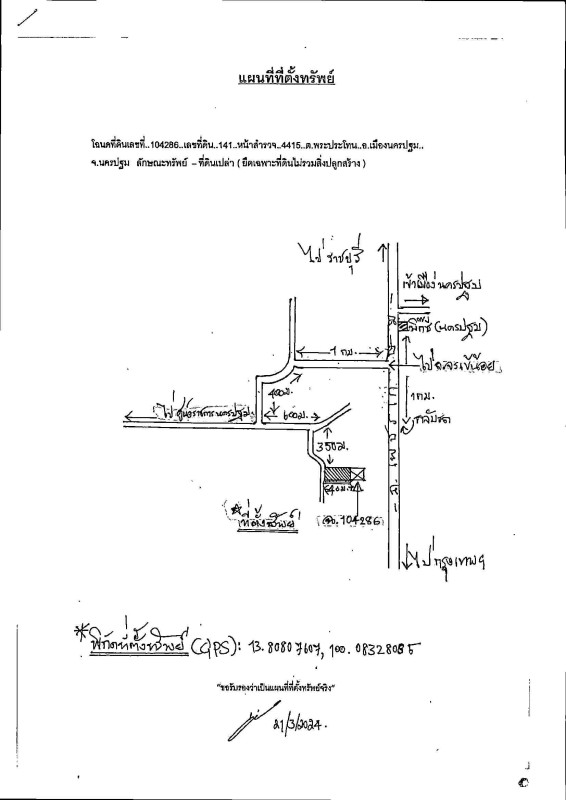 แผนที่ที่ตั้งทรัพย์
โฉนดที่ดินเลขที่..104286..เลขที่ดิน..141..หน้าสำรวจ..4415..ต.พระประโทน..อ.เมืองนครปฐม..
จ.นครปฐม ลักษณะทรัพย์ – ที่ดินเปล่า ( ยึดเฉพาะที่ดินไม่รวมสิ่งปลูกสร้าง )
ไปราชบุรี
เข้าเมืองนครปฐม
บิ๊กซี (นครปฐม)
1 กม.
ไป
400ม.
1 กม.
ไปศูนย์ราชการนครปฐม
600ม.
กลับรถ
350ม.
40ม.
ที่ตั้งทรัพย์
ฉ. 104286
ไปกรุงเทพฯ
*พิกัดที่ตั้งทรัพย์ (GPS): 13.80807607, 100.08328085
"ขอรับรองว่าเป็นแผนที่ที่ตั้งทรัพย์จริง"
21/3/2024.